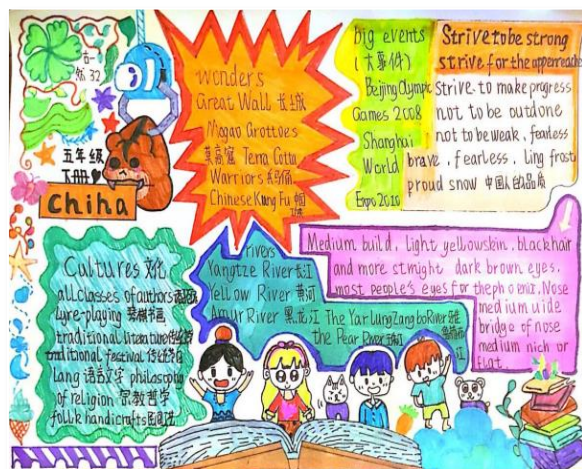 五年级
下册
Chiha
wonders
Great Wall 长城
Mogao Grottoes
莫高窟 Terra Cotta
Warriors 兵马俑
Chinese Kung Fu 中国
big events
(大事件)
Beijing Olympic
Games 2008
Shanghai
World
Expo 2010
Strive to be strong
strive for the upperreaches
Strive. to make progress
not to be outdone
not to be weak, fearless
brave, fearless, ling frost
proud snow 中国人的品质
Cultures 文化
all classes of authors
lyre-playing 琴棋书画
traditional literature 传统文学
traditional festival 传统节日
lang 语言文字 philosophy
of religion 宗教哲学
follk handicrafts
rivers
Yangtze River 长江
Yellow River 黄河
Amur River 黑龙江 The Yarlung Zangbo River
the Pear River 珠江
Medium build, light yellow skin, black hair
and more stmight dark brown eyes,
most people's eyes for the phoenix. Nose
medium wide
bridge of nose
medium nich or
flat